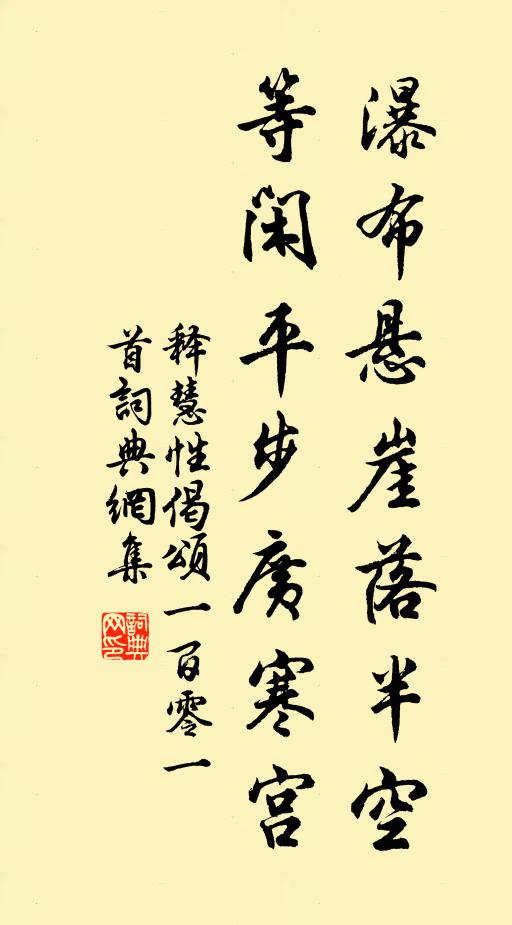 瀑布悬崖落半空
等闲平步廣寒宫
释慧性偈頌一百零一
首詞典網集
詞典
网印